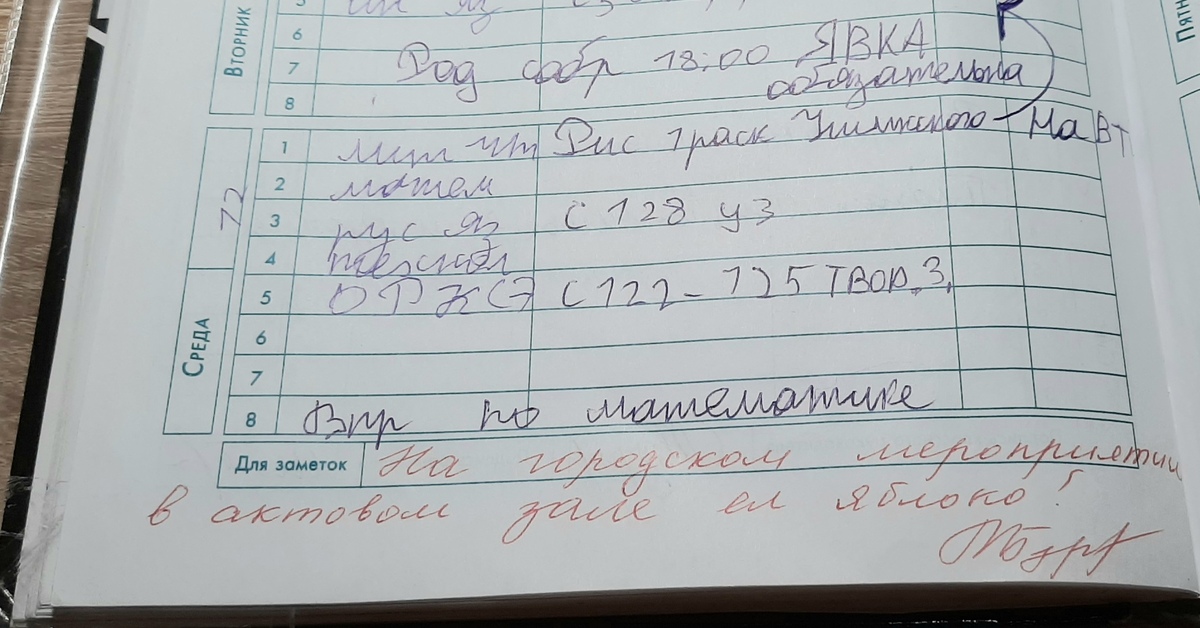 5 ин яз
6
ВТОРНИК
7 Род собр 18:00 ЯВКА
8 обязательна
1 лит чт Рис траск На Вт
2 матем
12
3 рус яз с 128 у3
4
5 ОРКСЭ с 122-125 ТВОР.З.
СРЕДА
6
7
8 Впр по математике
Для заметок На городском мероприятии
в актовом зале ел яблоко!
ПЯТН